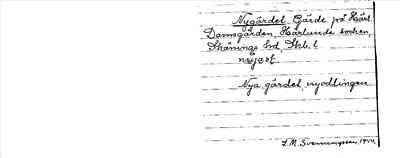 Nygärdet Gärde på Härl.
Damsgården, Härlunda socken,
Skånings hd, Skb. l.
nýjast
Nya gärdet, nyodlingen.
L.M. Svenungsson, 1944.